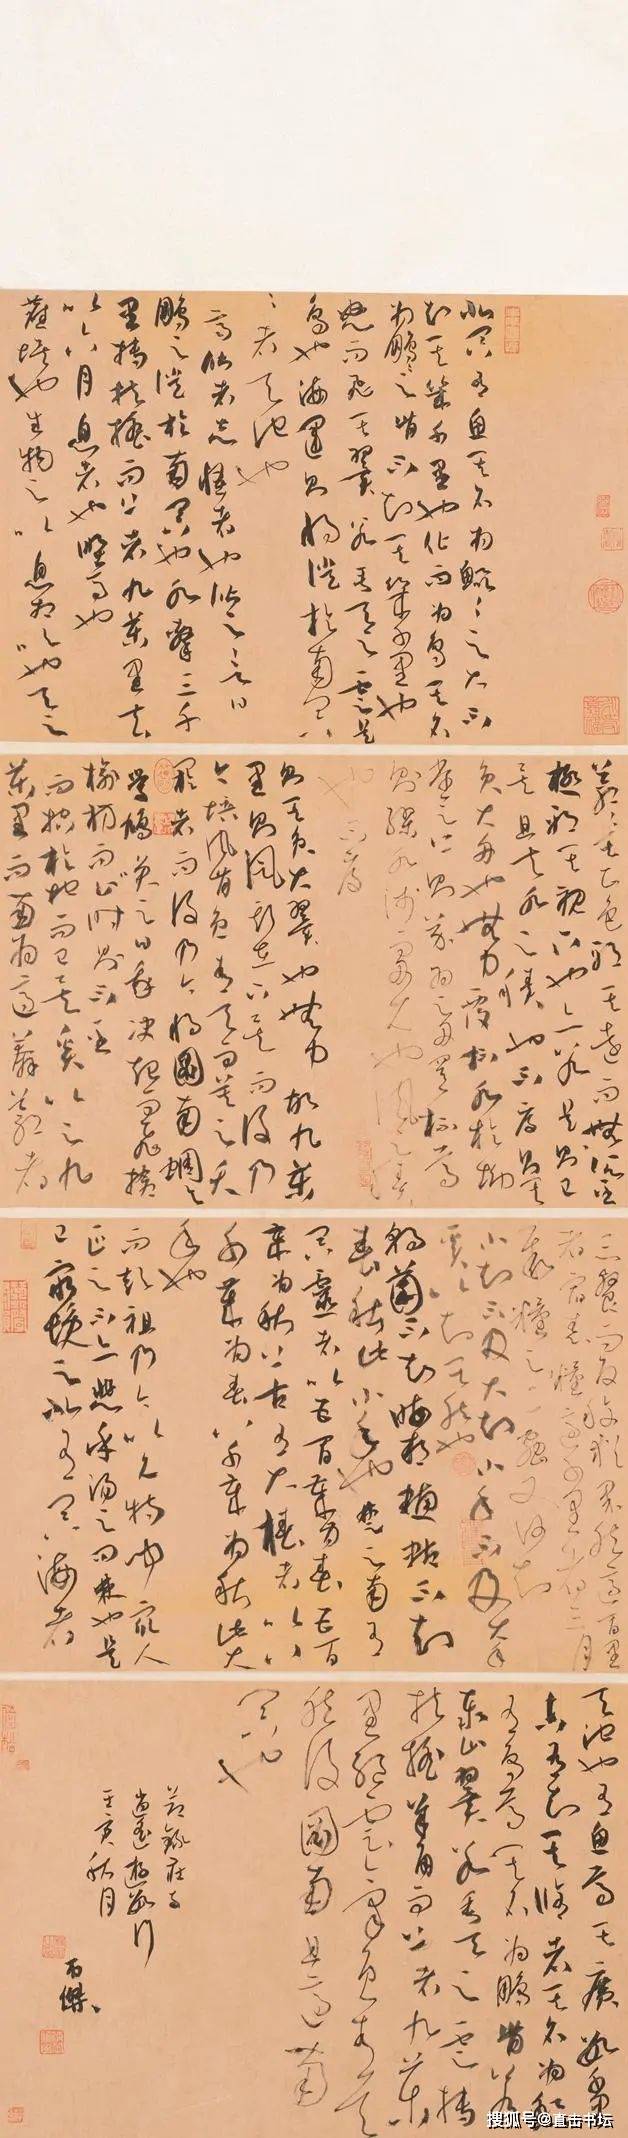 北冥有魚其名为鯤〻之大不
知其幾千里也化而为鳥其名
为鵬〻之背不知其幾千里也
怒而飛其翼若垂天之雲是
鳥也海運則將徙於南冥〻
〻者天池也
齊諧者志怪者也諧之言曰
鵬之徙於南冥也水擊三千
里摶扶搖而上者九萬里去
以六月息者也野馬也
塵埃也生物之以息相吹也天之
蒼〻其正色邪其遠而無所至
極邪其視下也亦若是則已
矣且夫水之積也不厚則其
負大舟也無力覆杯水於坳
堂之上則芥为之舟置杯焉
則膠水淺而舟大也風之積
也不厚
則其負大翼也無力故九萬
里則風斯在下矣而後乃
今培風背負青天而莫之夭
閼者而後乃今將圖南蜩與
學鳩笑之曰我決起而飛搶
榆枋而止時則不至
而控於地而已矣奚以之九
萬里而南为適莽蒼者
三飡而反腹猶果然適百里
者宿舂糧適千里者三月
聚糧之二蟲又何知
小知不及大知小年不及大年
奚以知其然也
朝菌不知晦朔蟪蛄不知
春秋此小年也楚之南有
冥靈者以五百歲为春五百
歲为秋上古有大椿者以八
千歲为春八千歲为秋此大
年也
而彭祖乃今以久特聞众人
匹之不亦悲乎湯之問棘也是
已窮髮之北有冥海者
天池也有魚焉其廣數千里
未有知其修者其名为鯤
有鳥焉其名为鵬背若
泰山翼若垂天之雲摶
扶搖羊角而上者九萬
里絕雲氣負青天
然後圖南且適南
冥也
節錄莊子
逍遙遊數行
壬寅秋月
搜狐号@直击书坛